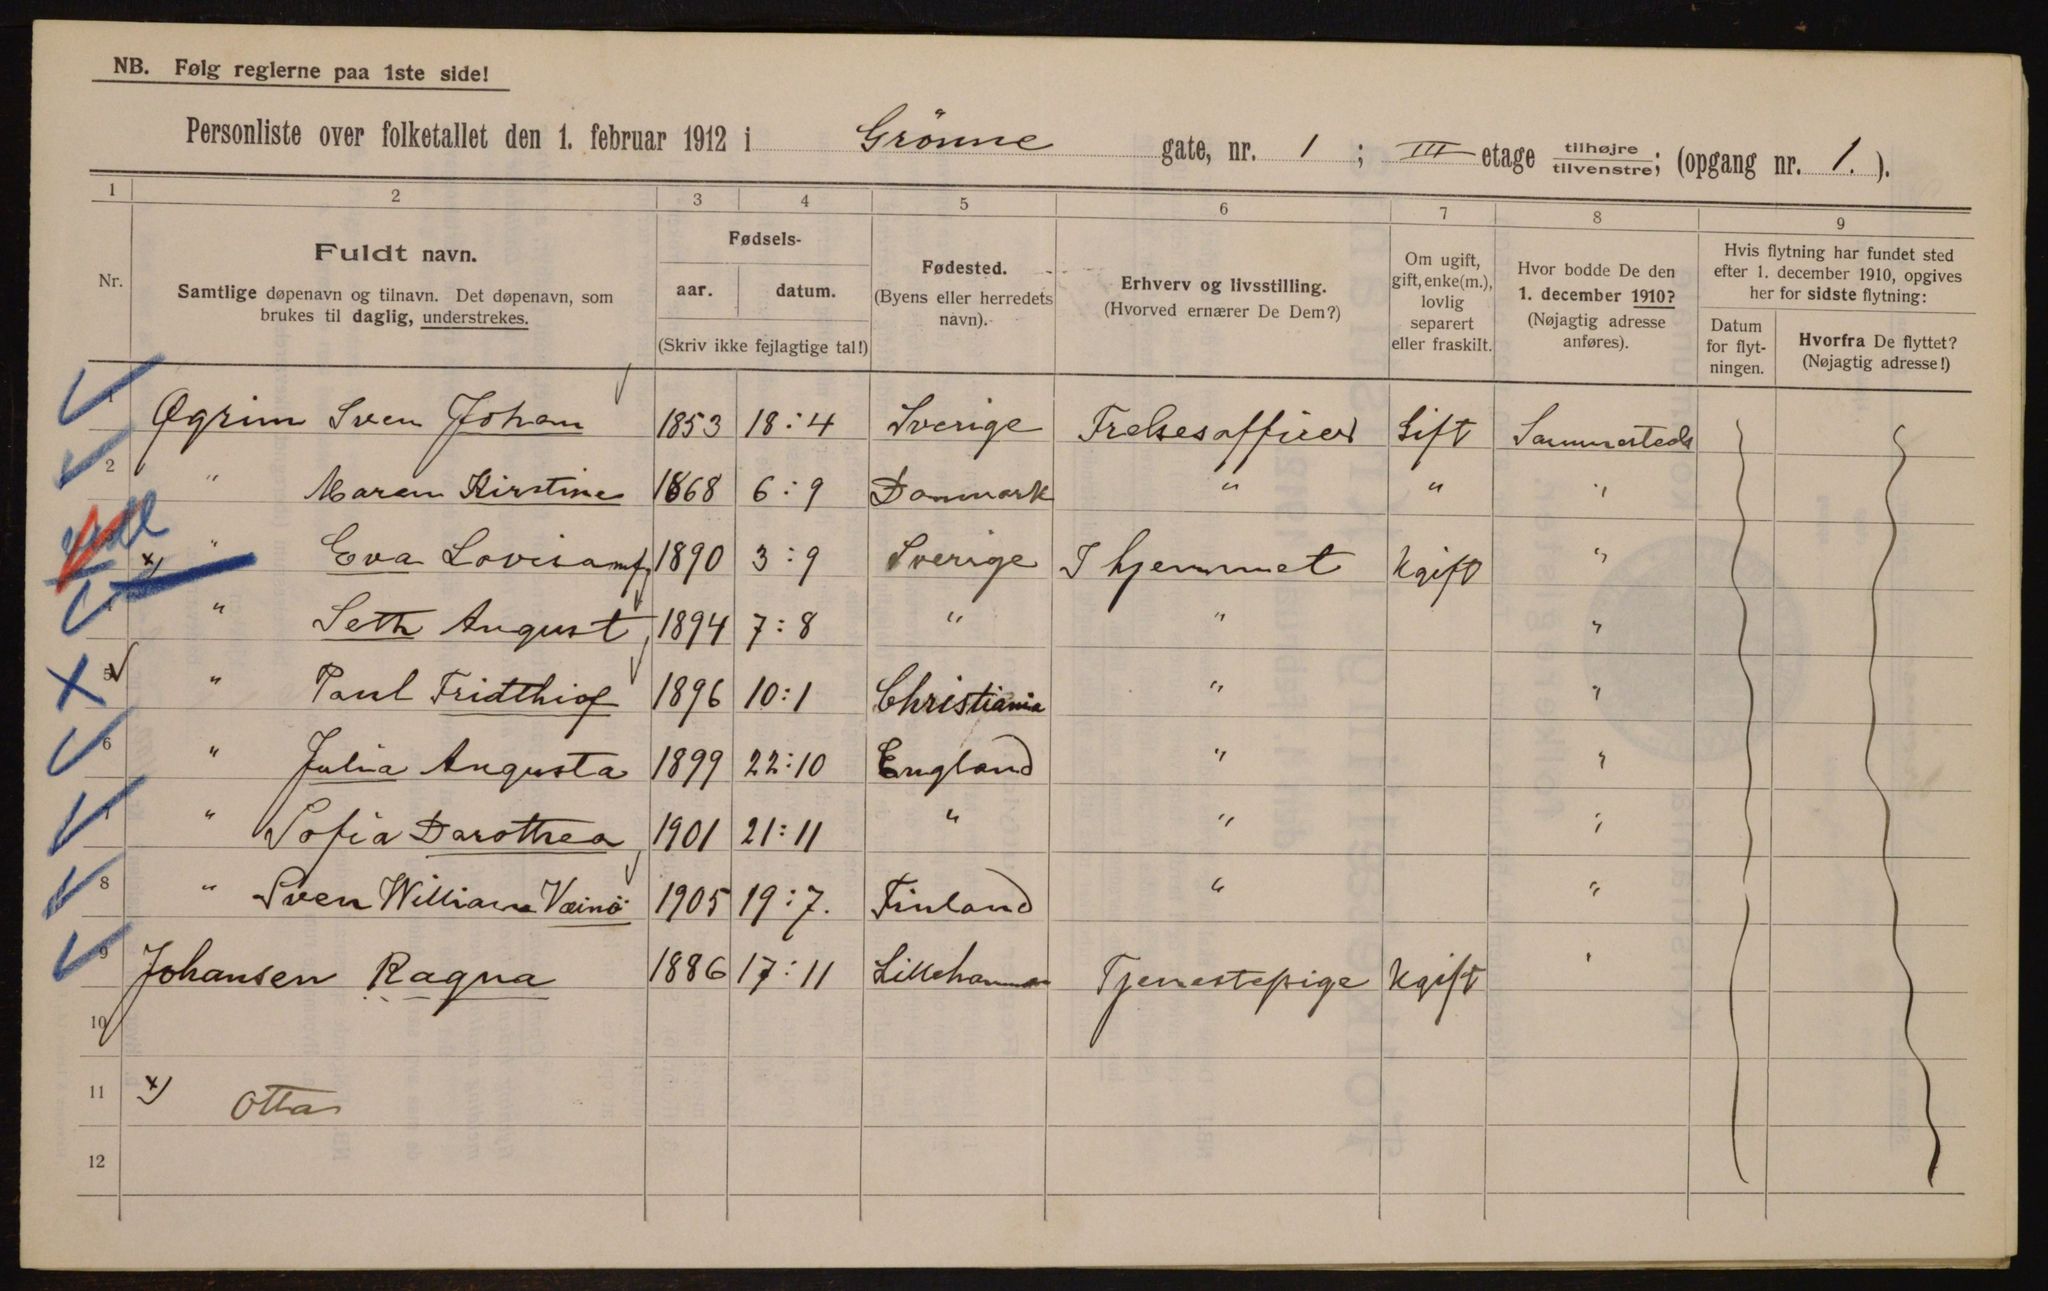 NB. Følg reglerne paa 1ste side!
Personliste over folketallet den 1. februar 1912 i Grönne gate, nr. 1 ; III etage tilhøjre tilvenstre; (opgang nr. 1. ).
1 2 3 4 5 6 7 8 9
Nr.
Fuldt navn.
Samtlige døpenavn og tilnavn. Det døpenavn, som
brukes til daglig, understrekes.
Fødsels-
aar. datum.
(Skriv ikke fejlagtige tal!)
Fødested.
(Byens eller herredets
navn).
Erhverv og livsstilling.
(Hvorved ernærer De Dem?)
Om ugift,
gift, enke(m.),
lovlig
separert
eller fraskilt.
Hvor bodde De den
1. december 1910?
(Nøjagtig adresse
anføres).
Hvis flytning har fundet sted
efter 1. december 1910, opgives
her for sidste flytning:
Datum
for flyt-
ningen.
Hvorfra De flyttet?
(Nøjagtig adresse!)
1 Øgrim Sven Johan 1853 18:4 Sverige Frelsesofficer Gift Sammesteds
2 " Maren Kirstine 1868 6:9 Danmark " " "
x) " Eva Lovisa 1890 3:9 Sverige I hjemmet Ugift "
4 " Seth August 1894 7:8 " " "
5 " Paul Fridthiof 1896 10:1 Christiania " "
6 " Julia Augusta 1899 22:10 England " "
7 " Sofia Dorothea 1901 21:11 " " "
8 " Sven William Væinö 1905 19:7. Finland " "
9 Johansen Ragna 1886 17:11 Lillehammer Tjenestepige Ugift "
10
11 x) Otta
12